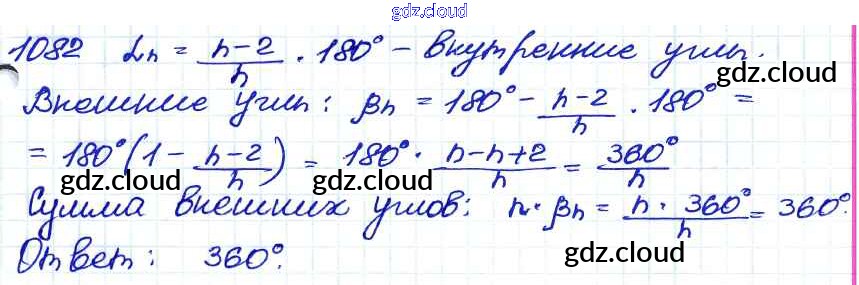 gdz.cloud
1082 αn = (n-2)/n · 180° – внутренние углы.
gdz.cloud
Внешние углы: βn = 180° – (n-2)/n · 180° =
= 180°(1 – (n-2)/n) = 180° · (n-n+2)/n = 360°/n
gdz.cloud gdz.cloud gdz.cloud
Сумма внешних углов: n · βn = (n · 360°)/n = 360°.
Ответ: 360°.
gdz.cloud gdz.cloud